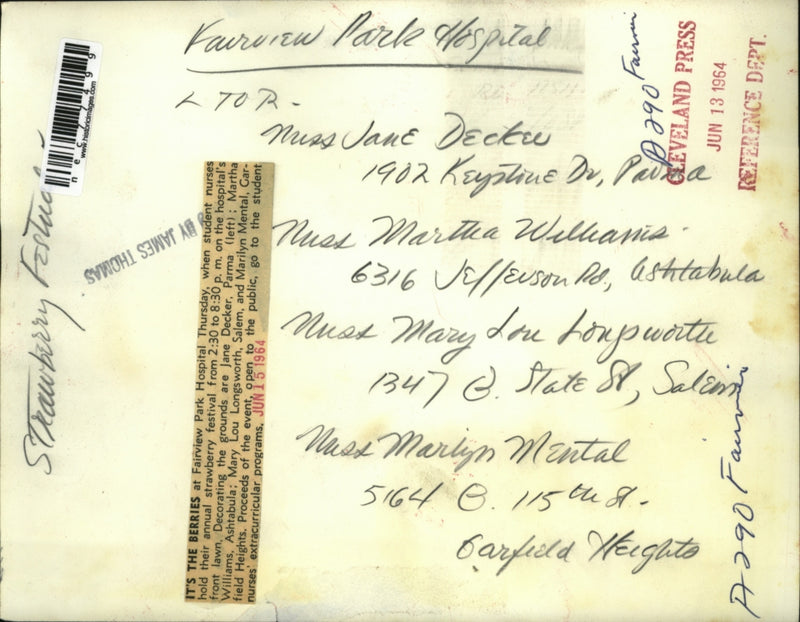 Fairview Park Hospital
L TO R -
Miss Jane Decker
1902 Keystone Dr, Parma
Miss Martha Williams
6316 Jefferson Rd, Ashtabula
Miss Mary Lou Longsworth
1347 E. State St, Salem
Miss Marilyn Mental
5164 E. 115th St.
Garfield Heights
Strawberry Festival
www.historicimages.com
BY JAMES THOMAS
IT'S THE BERRIES at Fairview Park Hospital Thursday, when student nurses
hold their annual strawberry festival from 2:30 to 8:30 p. m. on the hospital's
front lawn. Decorating the grounds are Jane Decker, Parma (left); Martha
Williams, Ashtabula; Mary Lou Longsworth, Salem, and Marilyn Mental, Gar-
field Heights. Proceeds of the event, open to the public, go to the student
nurses' extracurricular programs.
JUN 15 1964
A290 Fairvi
CLEVELAND PRESS
JUN 13 1964
REFERENCE DEPT.
A290 Fairvi